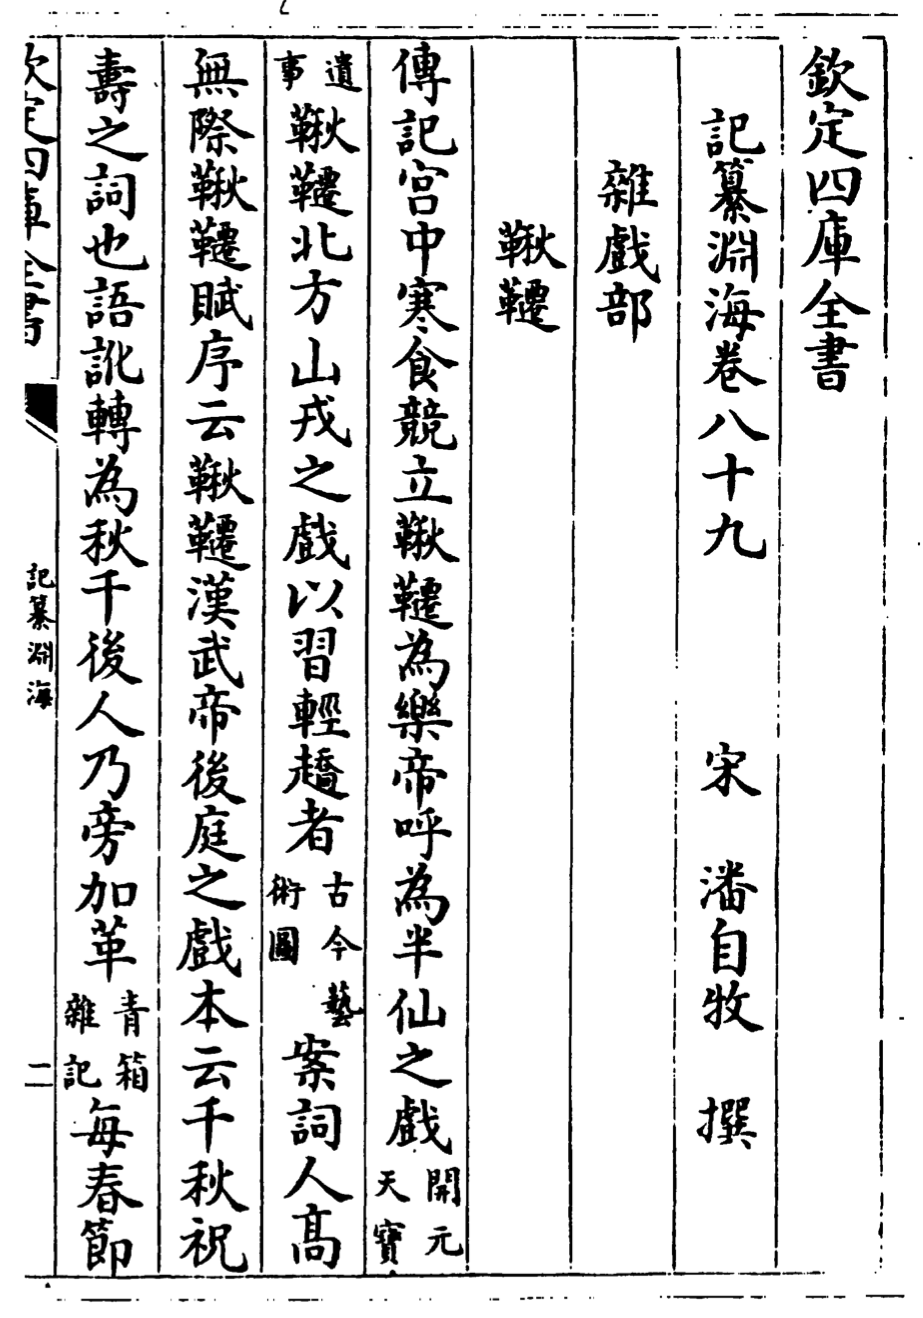 欽定四庫全書
記纂淵海卷八十九　宋　潘自牧　撰
雜戲部
鞦韆
傳記宫中寒食競立鞦韆為樂帝呼為半仙之戲開元天寶
遺事鞦韆北方山戎之戲以習輕趫者古今藝術圖案詞人髙
無際鞦韆賦序云鞦韆漢武帝後庭之戲本云千秋祝
壽之詞也語訛轉為秋千後人乃旁加革青箱雜記每春節
欽定四庫全書
記纂淵海
二